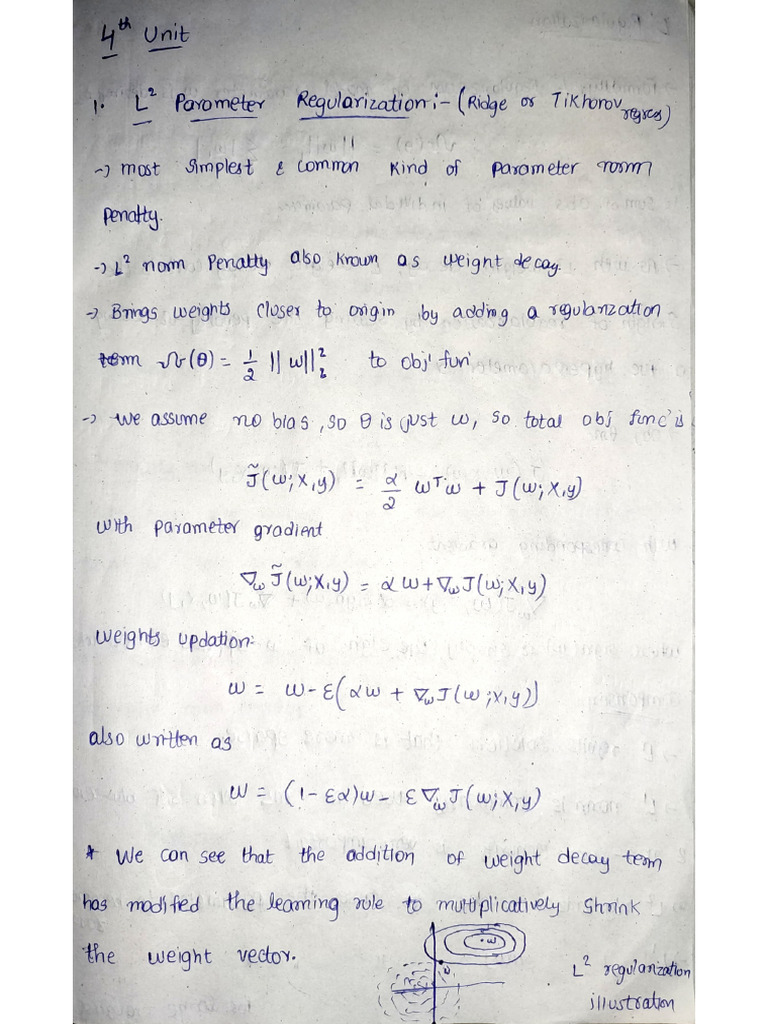 4th Unit
1. L² Parameter Regularization:- (Ridge or Tikhorov regres)
-> most Simplest & Common Kind of Parameter norm
Penalty.
-> L² norm Penalty also known as weight decay.
-> Brings weights closer to origin by adding a regularization
term Ω(θ) = 1/2 ||w||²₂ to obj' fun'
-> we assume no bias, so θ is just w, so total obj func' is
J̃(w; X, y) = α/2 wᵀw + J(w; X, y)
with parameter gradient
∇w J̃(w; X, y) = αw + ∇w J(w; X, y)
weights updation:
w = w - ε(αw + ∇w J(w; X, y))
also written as
w = (1 - εα)w - ε∇w J(w; X, y)
* We can see that the addition of weight decay term
has modified the learning rule to multiplicatively Shrink
the weight vector.
w
L² regularization
illustration